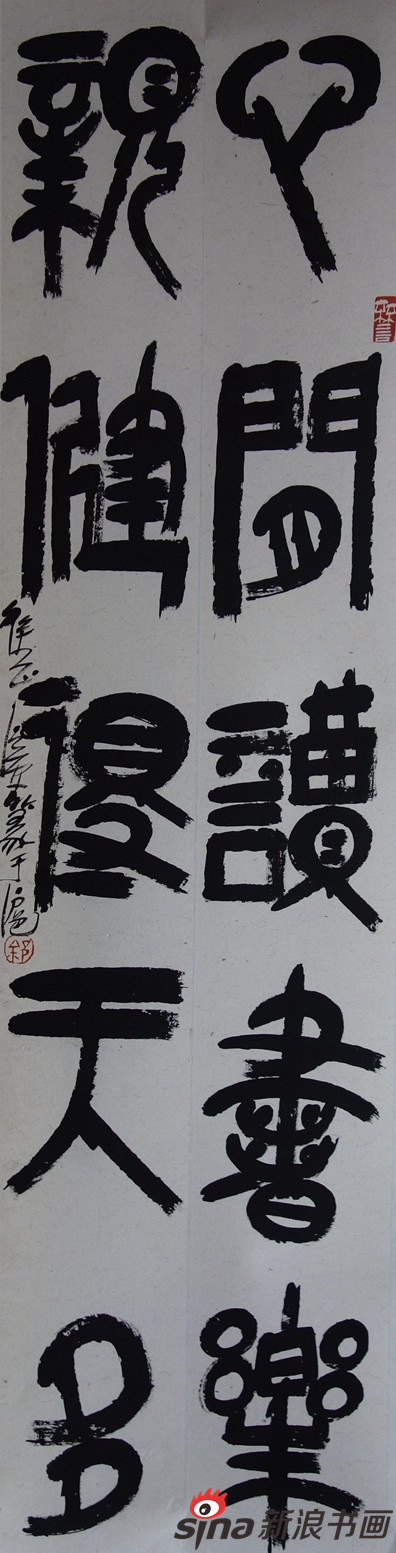 心閒讀書樂
親健得天多
sina新浪书画